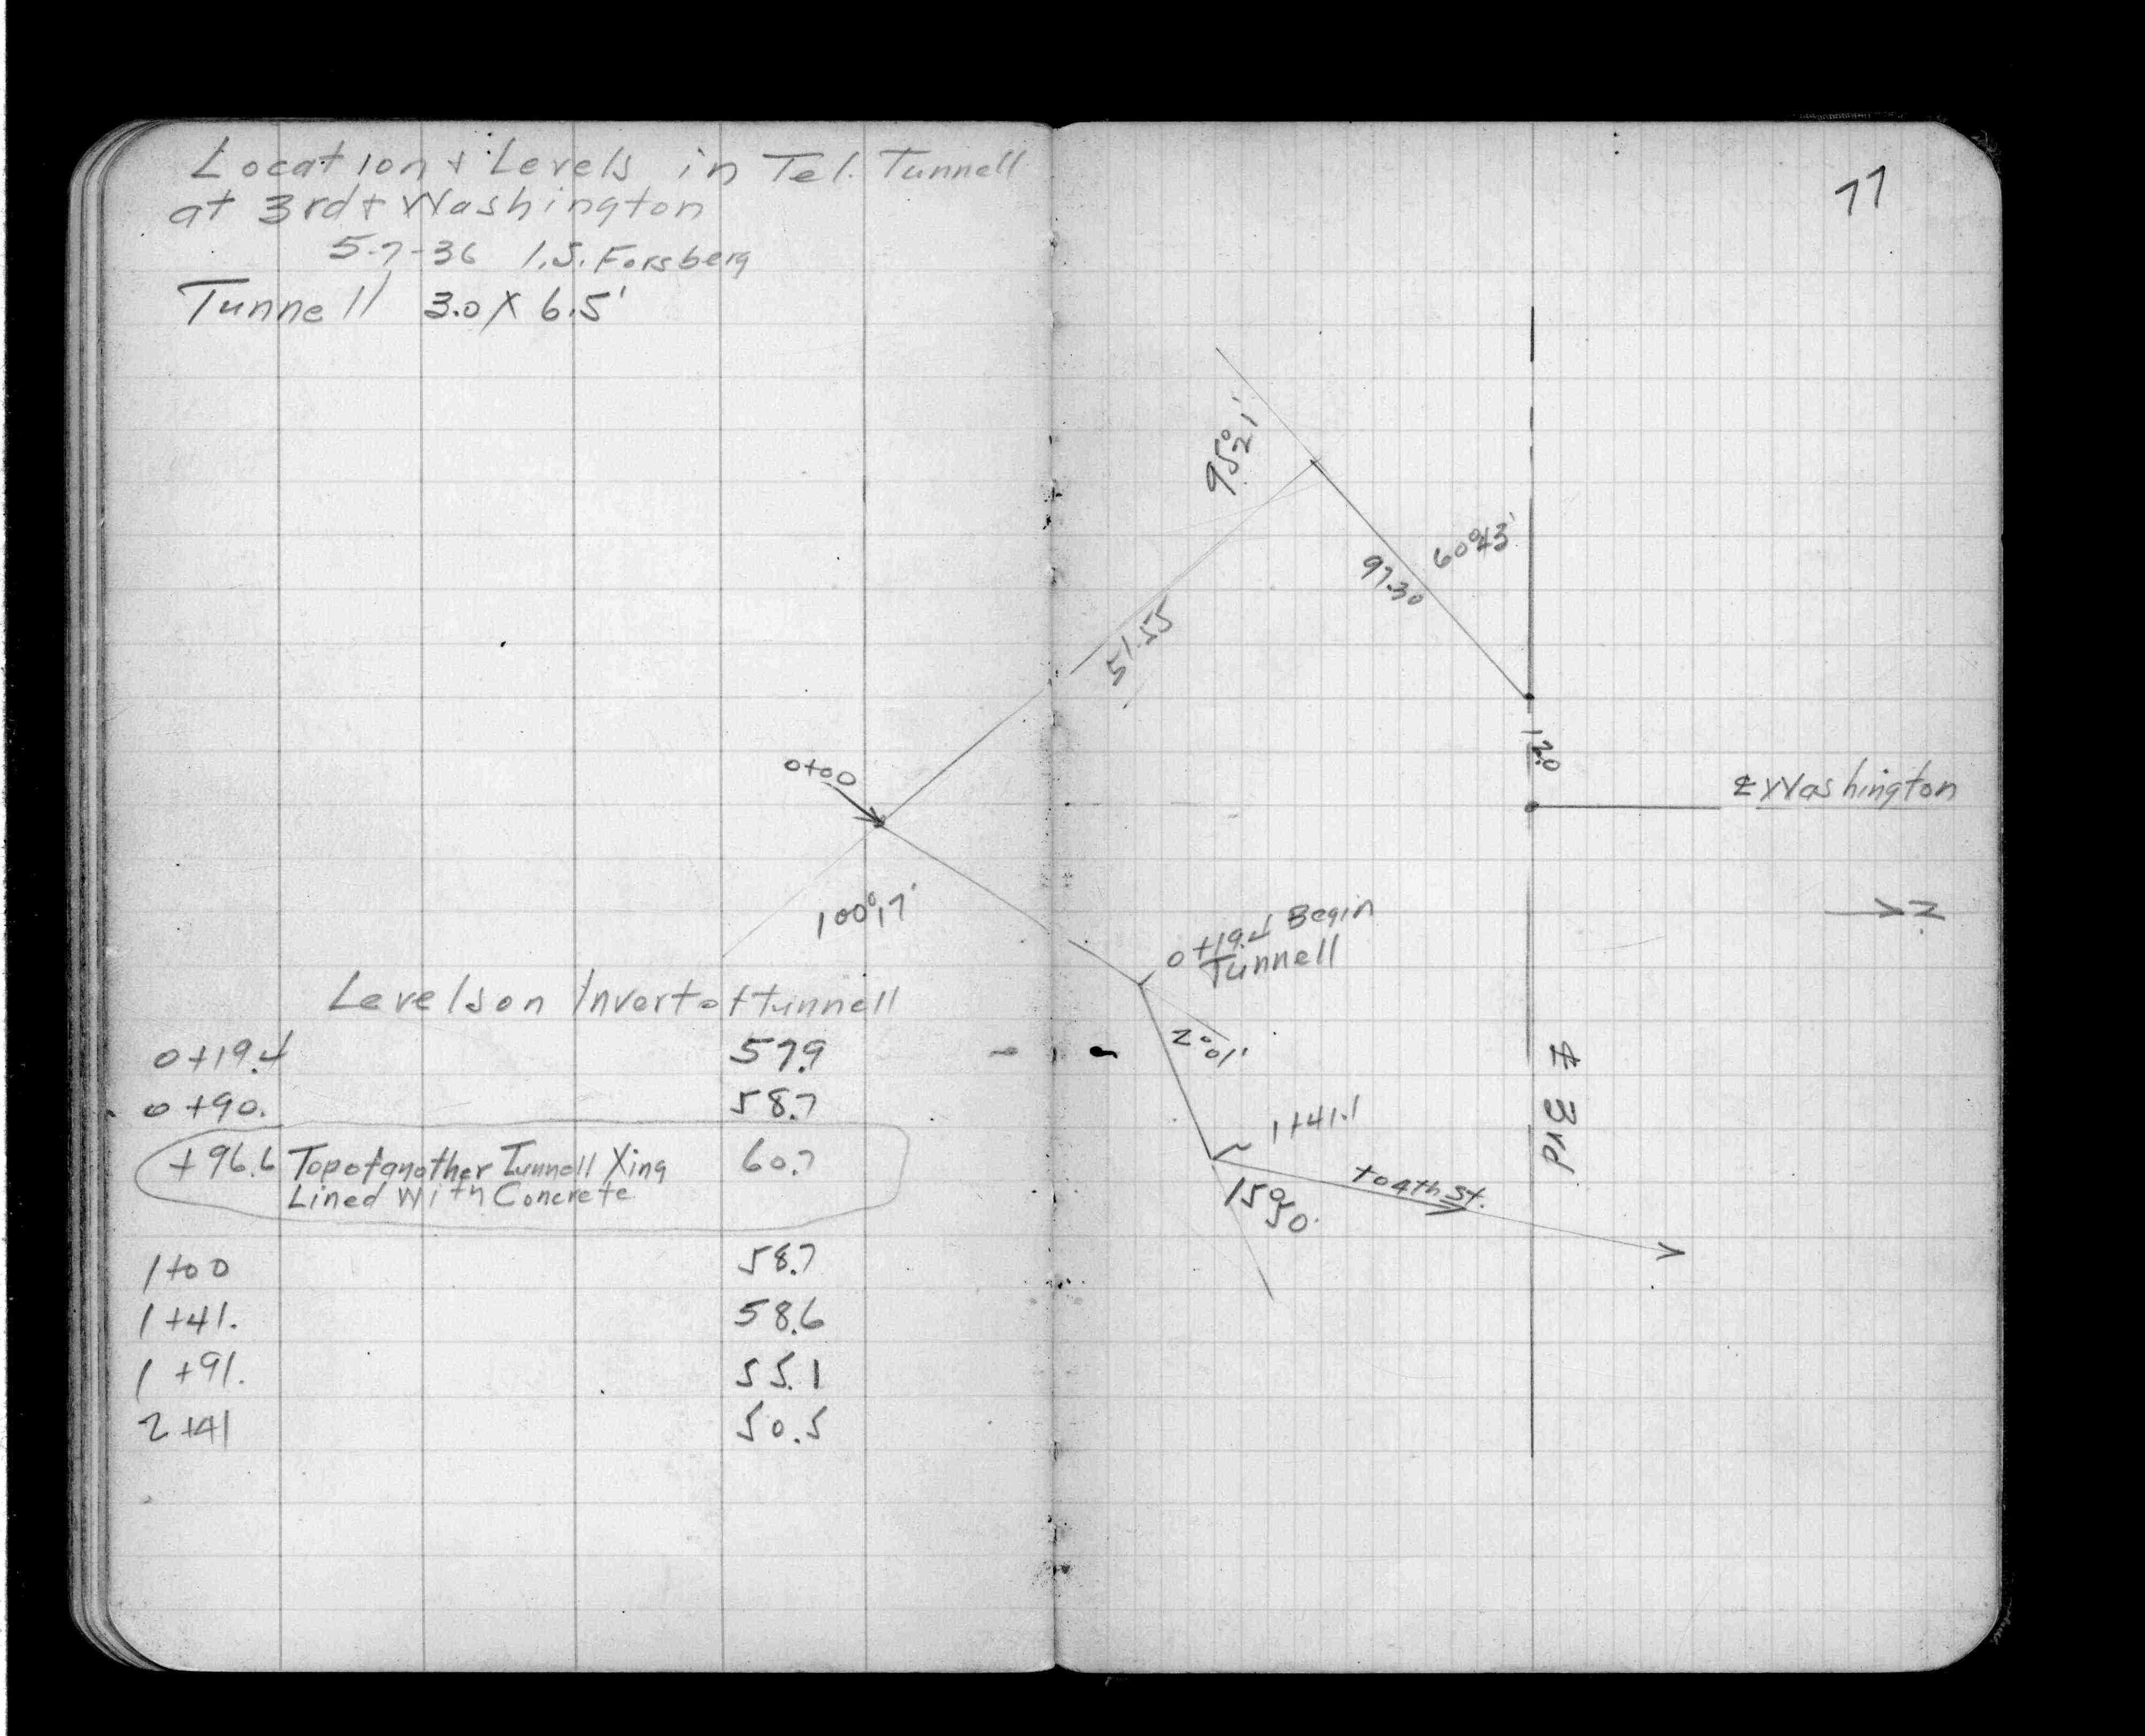 Location & Levels in Tel. Tunnell
at 3rd & Washington
5-7-36 I.S. Forsberg
Tunnell 3.0 X 6.5'
0+00
100°17'
Levels on Invert of tunnell
0+19.4 57.9
0+90. 58.7
+96.6 Top of another Tunnell Xing 60.7
Lined With Concrete
1+00 58.7
1+41. 58.6
1+91. 55.1
2+41 50.5
77
95°21'
60°43'
97.30
51.55
12.0
℄ Washington
N
0+19.4 Begin
Tunnell
2°01'
℄ 3rd
1+41.1
to 4th St.
15°50'